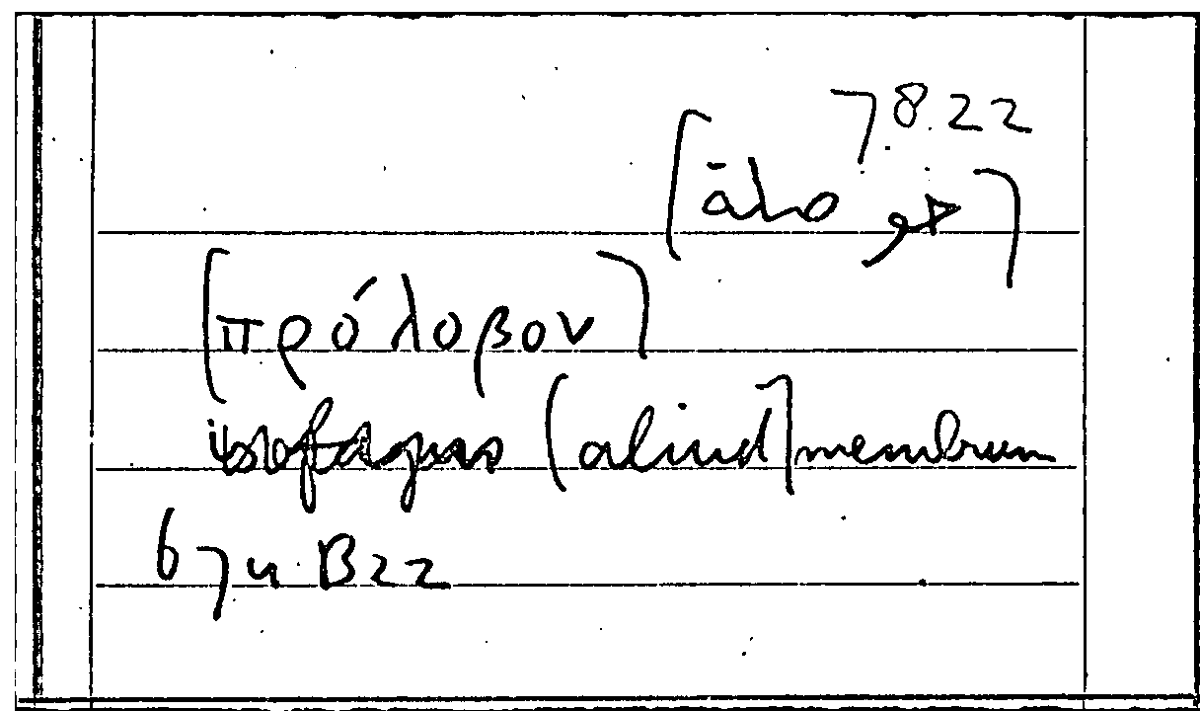 78.22
[πρόλοβον]
isofagus [aliud] membrum
674 B22